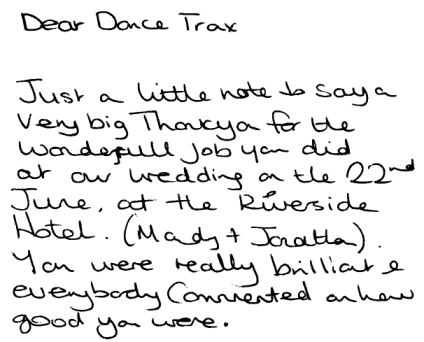 Dear Dance Trax
Just a little note to say a
very big Thankyou for the
wonderfull job you did
at our wedding on the 22nd
June, at the Riverside
Hotel. (Mandy + Jonathan).
You were really brilliant &
everybody Commented on how
good you were.